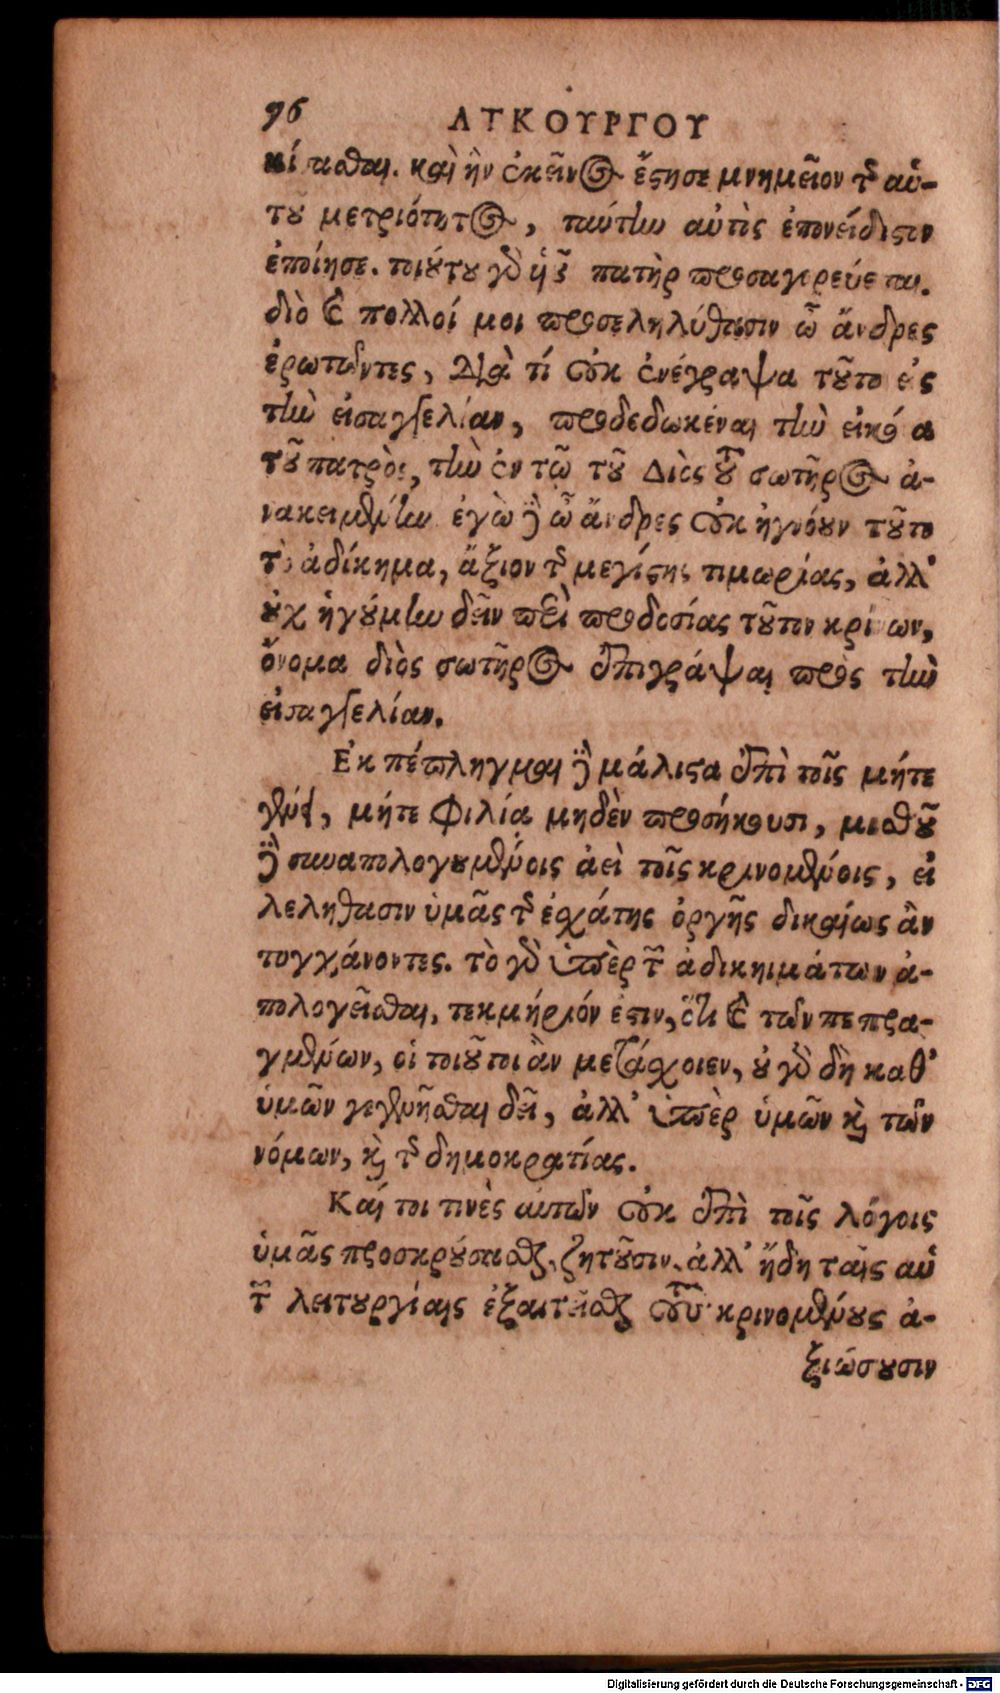 96 ΛΥΚΟΥΡΓΟΥ
κίσασθαι. καὶ ἣν ἐκεῖνος ἔστησε μνημεῖον τῆς αὑ-
τοῦ μετριότητος, ταύτην αὐτὸς ἐπονείδιστον
ἐποίησε. τοιούτου γὰρ ὑιοῦ πατὴρ προσαγορεύεται.
διὸ καὶ πολλοί μοι προσεληλύθασιν ὦ ἄνδρες
ἐρωτῶντες, διὰ τί οὐκ ἐνέγραψα τοῦτο εἰς
τὴν εἰσαγγελίαν, προδεδωκέναι τὴν εἰκόνα
τοῦ πατρὸς, τὴν ἐν τῷ τοῦ Διὸς τοῦ σωτῆρος ἀ-
νακειμένην ἐγὼ δὲ ὦ ἄνδρες οὐκ ἠγνόουν τοῦτο
τὸ ἀδίκημα, ἄξιον τῆς μεγίστης τιμωρίας, ἀλλ'
οὐχ ἡγούμην δεῖν περὶ προδοσίας τοῦτον κρίνων,
ὄνομα διὸς σωτῆρος ἐπιγράψαι πρὸς τὴν
εἰσαγγελίαν.
Ἐκπέπληγμαι δὲ μάλιστα ἐπὶ τοῖς μήτε
γένει, μήτε φιλία μηδὲν προσήκουσι, μισθοῦ
δὲ συναπολογουμένοις ἀεὶ τοῖς κρινομένοις, εἰ
λελήθασιν ὑμᾶς τῆς ἐσχάτης ὀργῆς δικαίως ἂν
τυγχάνοντες. τὸ γὰρ ὑπὲρ τῶν ἀδικημάτων ἀ-
πολογεῖσθαι, τεκμήριόν ἐστιν, ὅτι καὶ τῶν πεπρα-
γμένων, οἱ τοιοῦτοι ἂν μετάσχοιεν, οὐ γὰρ δὴ καθ'
ὑμῶν γεγενῆσθαι δεῖ, ἀλλ' ὑπὲρ ὑμῶν καὶ τῶν
νόμων, καὶ τῆς δημοκρατίας.
Καί τοι τινὲς αὐτῶν οὐκ ἐπὶ τοῖς λόγοις
ὑμᾶς προσκρούσασθαι ζητοῦσιν. ἀλλ' ἤδη ταῖς αὑ
τῶν λειτουργίαις ἐξαιτεῖσθαι τοὺς κρινομένους ἀ-
ξιώσουσιν
Digitalisierung gefördert durch die Deutsche Forschungsgemeinschaft - DFG